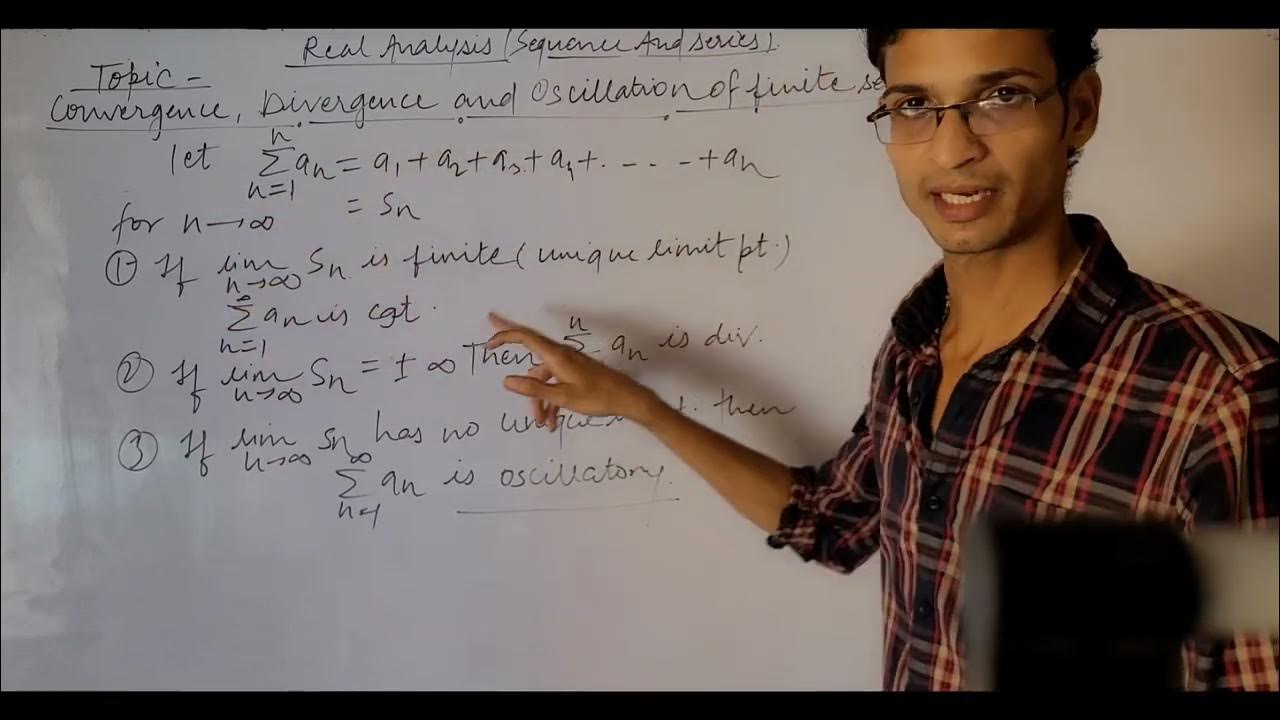 Real Analysis (Sequence And series).
Topic -
Convergence, Divergence and Oscillation of finite se
let $\sum_{n=1}^{n} a_n = a_1 + a_2 + a_3 + a_4 + \cdots + a_n$
for n → ∞ = Sn
① If $\lim_{n \to \infty} S_n$ is finite (unique limit pt.)
$\sum_{n=1}^{\infty} a_n$ is cgt.
② If $\lim_{n \to \infty} S_n = \pm \infty$ Then $\sum^{n} a_n$ is div.
③ If $\lim_{n \to \infty} S_n$ has no unique then
$\sum_{n=1}^{\infty} a_n$ is oscillatory.